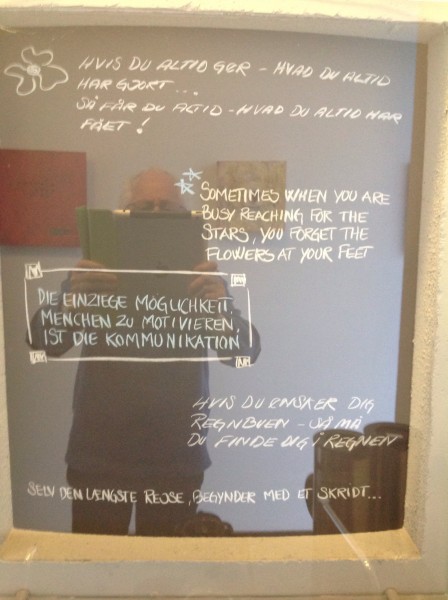 HVIS DU ALTID GØR - HVAD DU ALTID
HAR GJORT...
SÅ FÅR DU ALTID - HVAD DU ALTID HAR
FÅET!
SOMETIMES WHEN YOU ARE
BUSY REACHING FOR THE
STARS, YOU FORGET THE
FLOWERS AT YOUR FEET
DIE EINZIEGE MÖGLICHKEIT,
MENCHEN ZU MOTIVIEREN,
IST DIE KOMMUNIKATION
HVIS DU ØNSKER DIG
REGNBUEN - SÅ MÅ
DU FINDE DIG I REGNEN
SELV DEN LÆNGSTE REJSE, BEGYNDER MED ET SKRIDT...